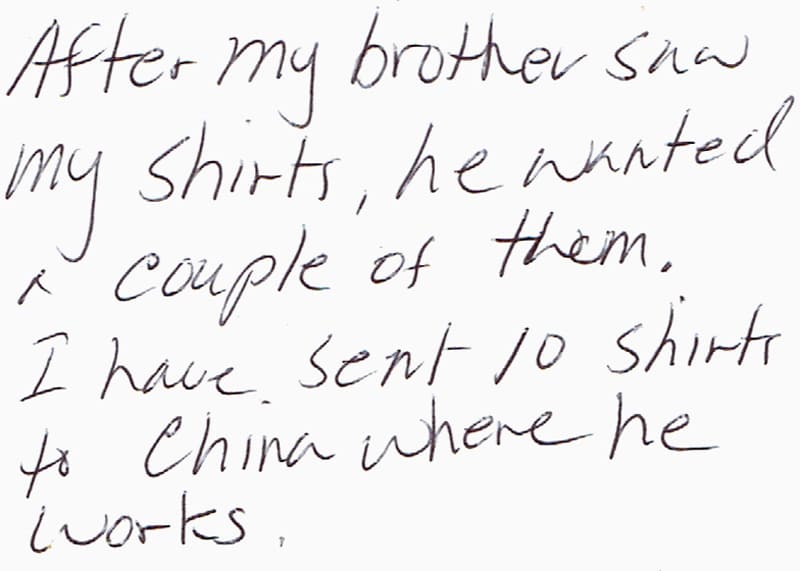 After my brother saw
my shirts, he wanted
a couple of them.
I have sent 10 shirts
to China where he
works.